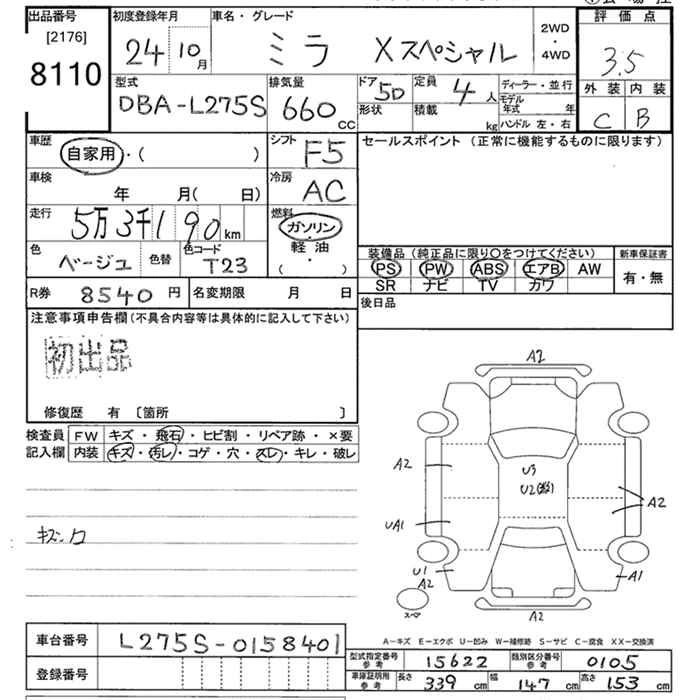 出品番号
[2176]
8110
初度登録年月
24 10月
車名・グレード
ミラ Xスペシャル
2WD
・
4WD
評価点
3.5
外装 内装
C B
型式
DBA-L275S
排気量
660cc
ドア
5D
定員
4人
形状
積載
kg
ディーラー・並行
モデル年式 年
ハンドル 左・右
車歴
自家用・( )
シフト
F5
車検
年 月( 日)
冷房
AC
走行
5万3千190km
燃料
ガソリン
・
軽油
( )
色
ベージュ
色替
色コード
T23
R券 8540円
名変期限 月 日
セールスポイント(正常に機能するものに限ります)
装備品(純正品に限り○をつけてください)
PS PW ABS エアB AW
SR ナビ TV カワ
新車保証書
有・無
後日品
注意事項申告欄(不具合内容等は具体的に記入して下さい)
初出品
修復歴 有 〔箇所 〕
検査員記入欄
FW キズ・飛石・ヒビ割・リペア跡・×要
内装 キズ・汚レ・コゲ・穴・スレ・キレ・破レ
A2
A2
U3
U2
A2
UA1
U1
A2
A1
スペア
A2
A-キズ E-エクボ U-凹み W-補修跡 S-サビ C-腐食 XX-交換済
車台番号
L275S-0158401
登録番号
型式指定番号
参考
15622
類別区分番号
参考
0105
車庫証明用
参考
長さ 339cm
幅 147cm
高さ 153cm